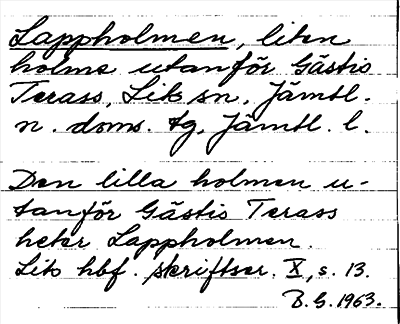 Lappholmen, liten
holme utanför Gästis
Terass, Lits sn, Jämtl.
n. doms. tg, Jämtl. l.
Den lilla holmen u-
tanför Gästis Terass
heter Lappholmen.
Lits hbf. skriftser. X, s. 13.
B.G. 1963.